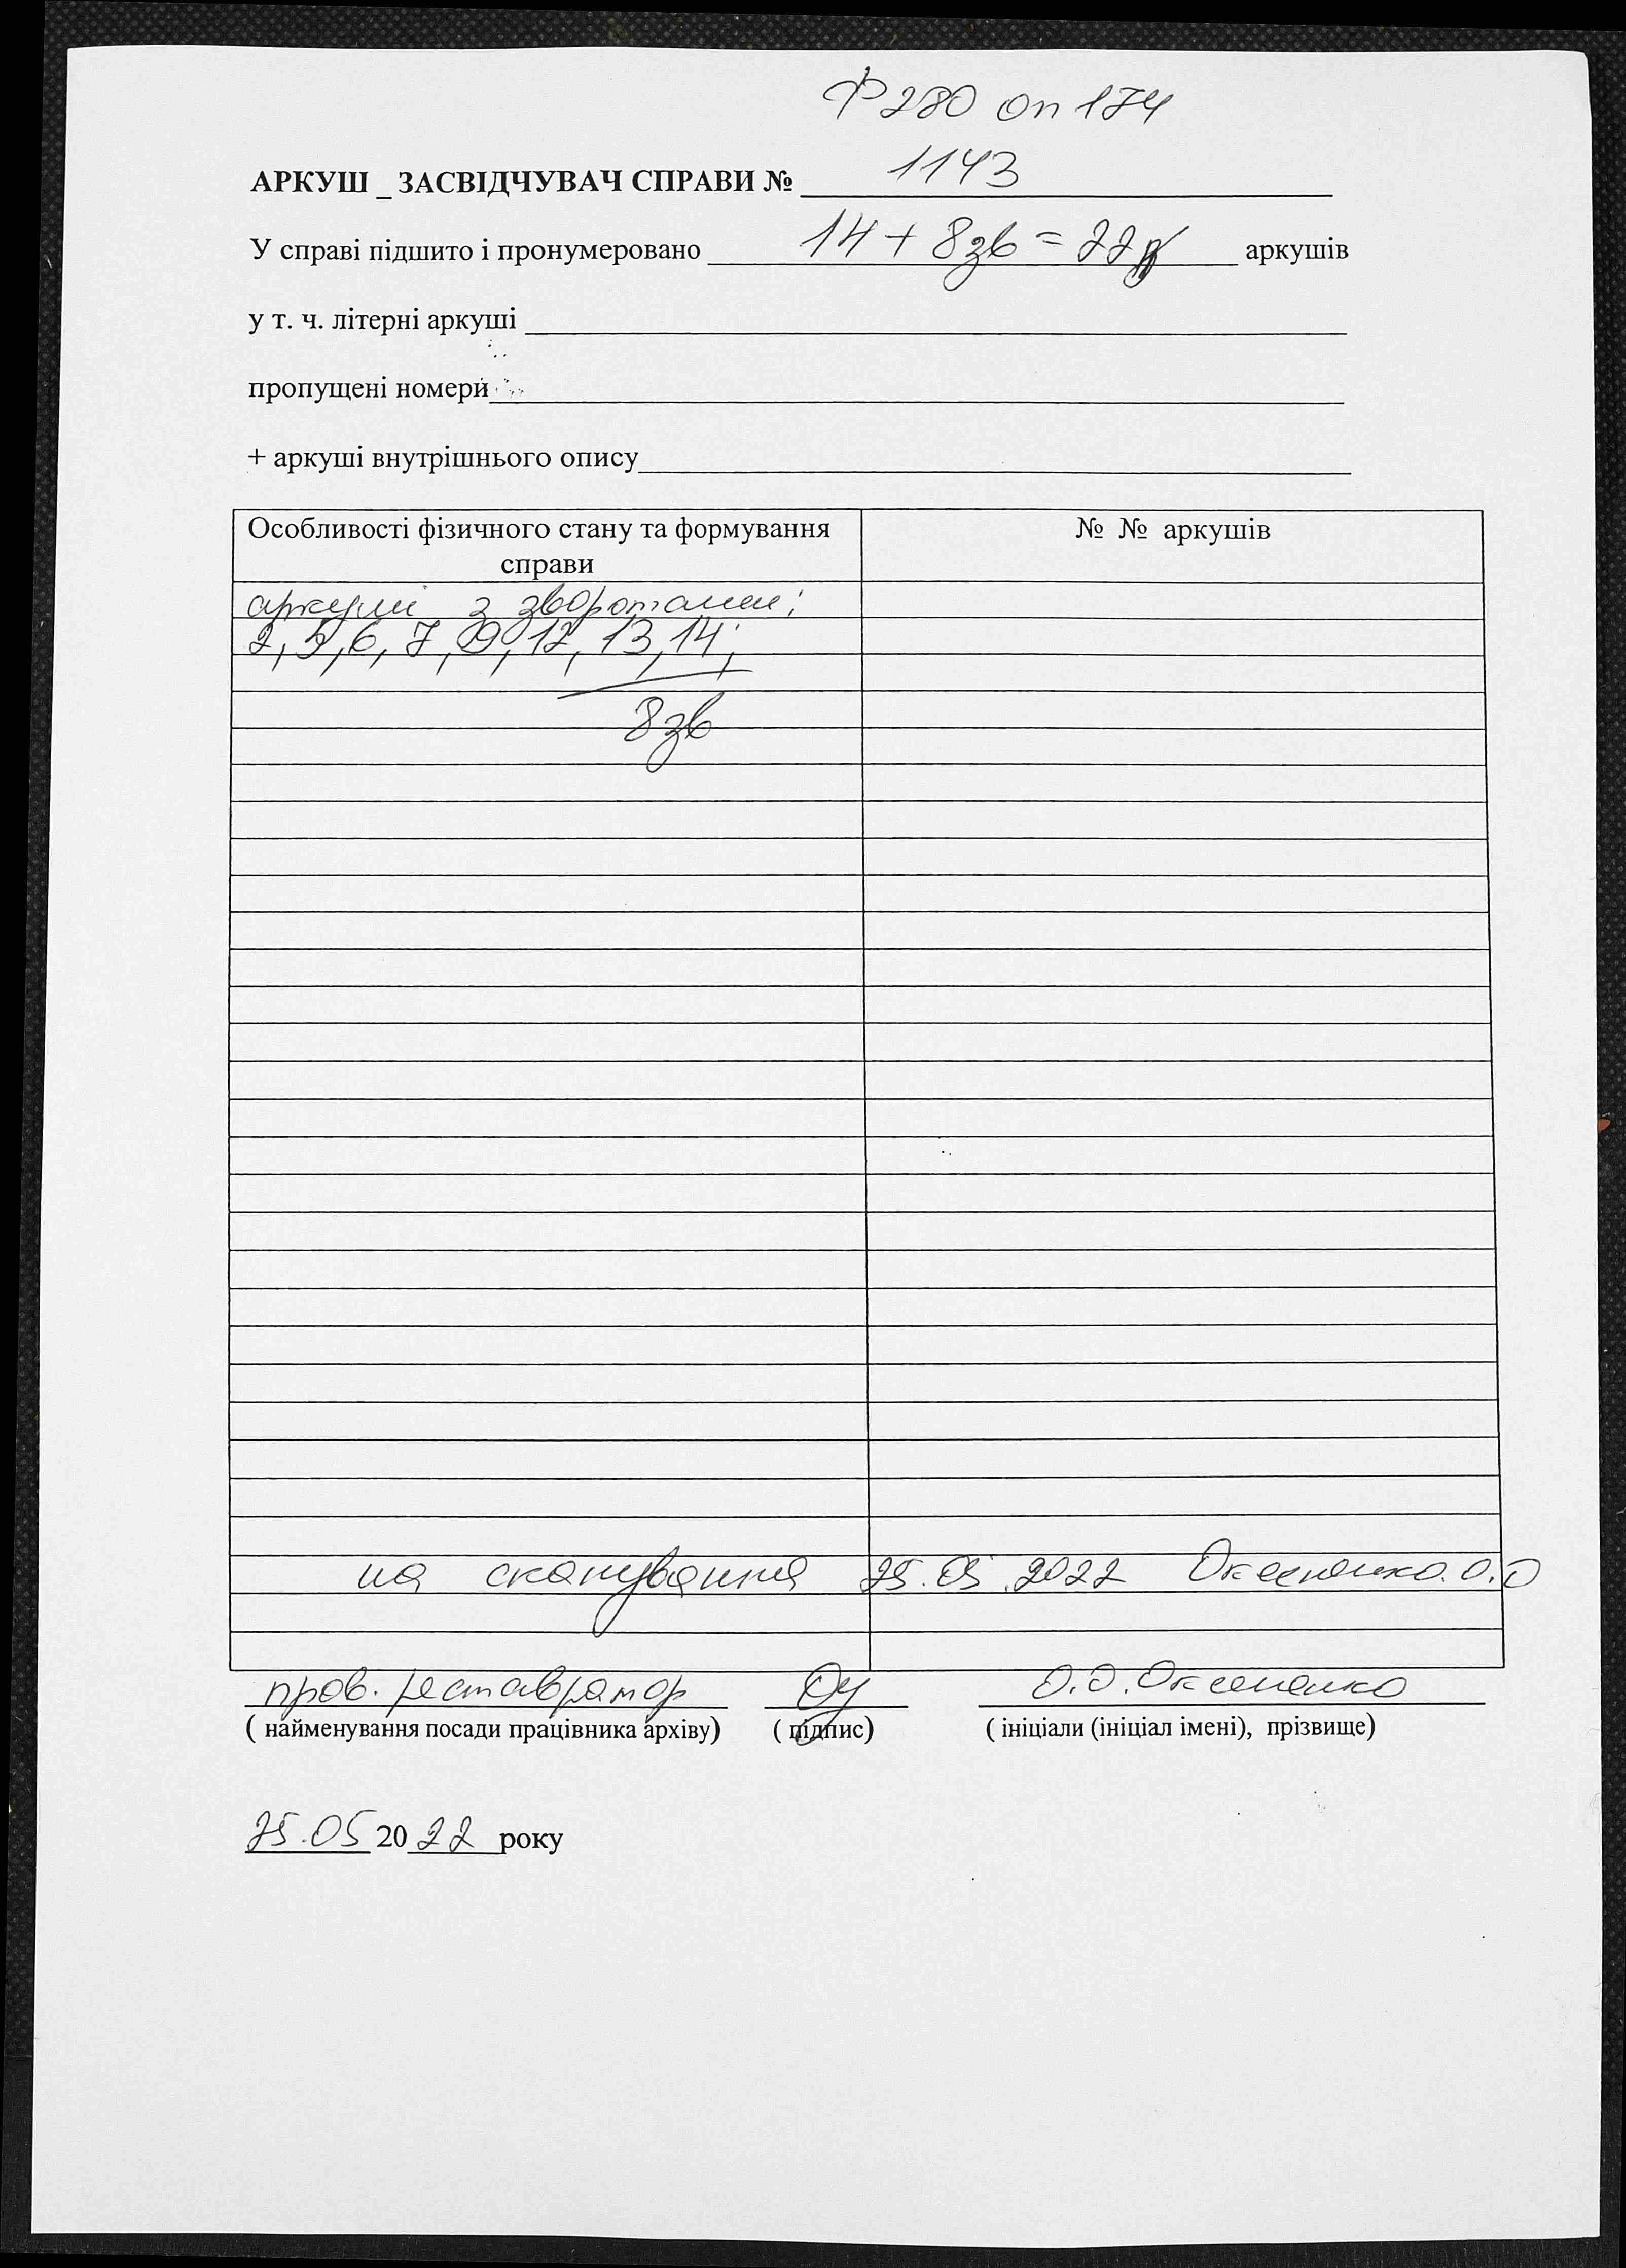 Ф 280 оп 174
АРКУШ _ ЗАСВІДЧУВАЧ СПРАВИ № 1143
У справі підшито і пронумеровано 14 + 8 зв = 22 аркушів
у т. ч. літерні аркуші
пропущені номери
+ аркуші внутрішнього опису
Особливості фізичного стану та формування № № аркушів
справи
аркуші з зворотами;
2, 5, 6, 7, 9, 12, 13, 14;
8 зв
на сканування 25.05.2022 Оксененко О.О
пров. реставратор О.О. Оксененко
( найменування посади працівника архіву) ( підпис) ( ініціали (ініціал імені), прізвище)
25.05 2022 року